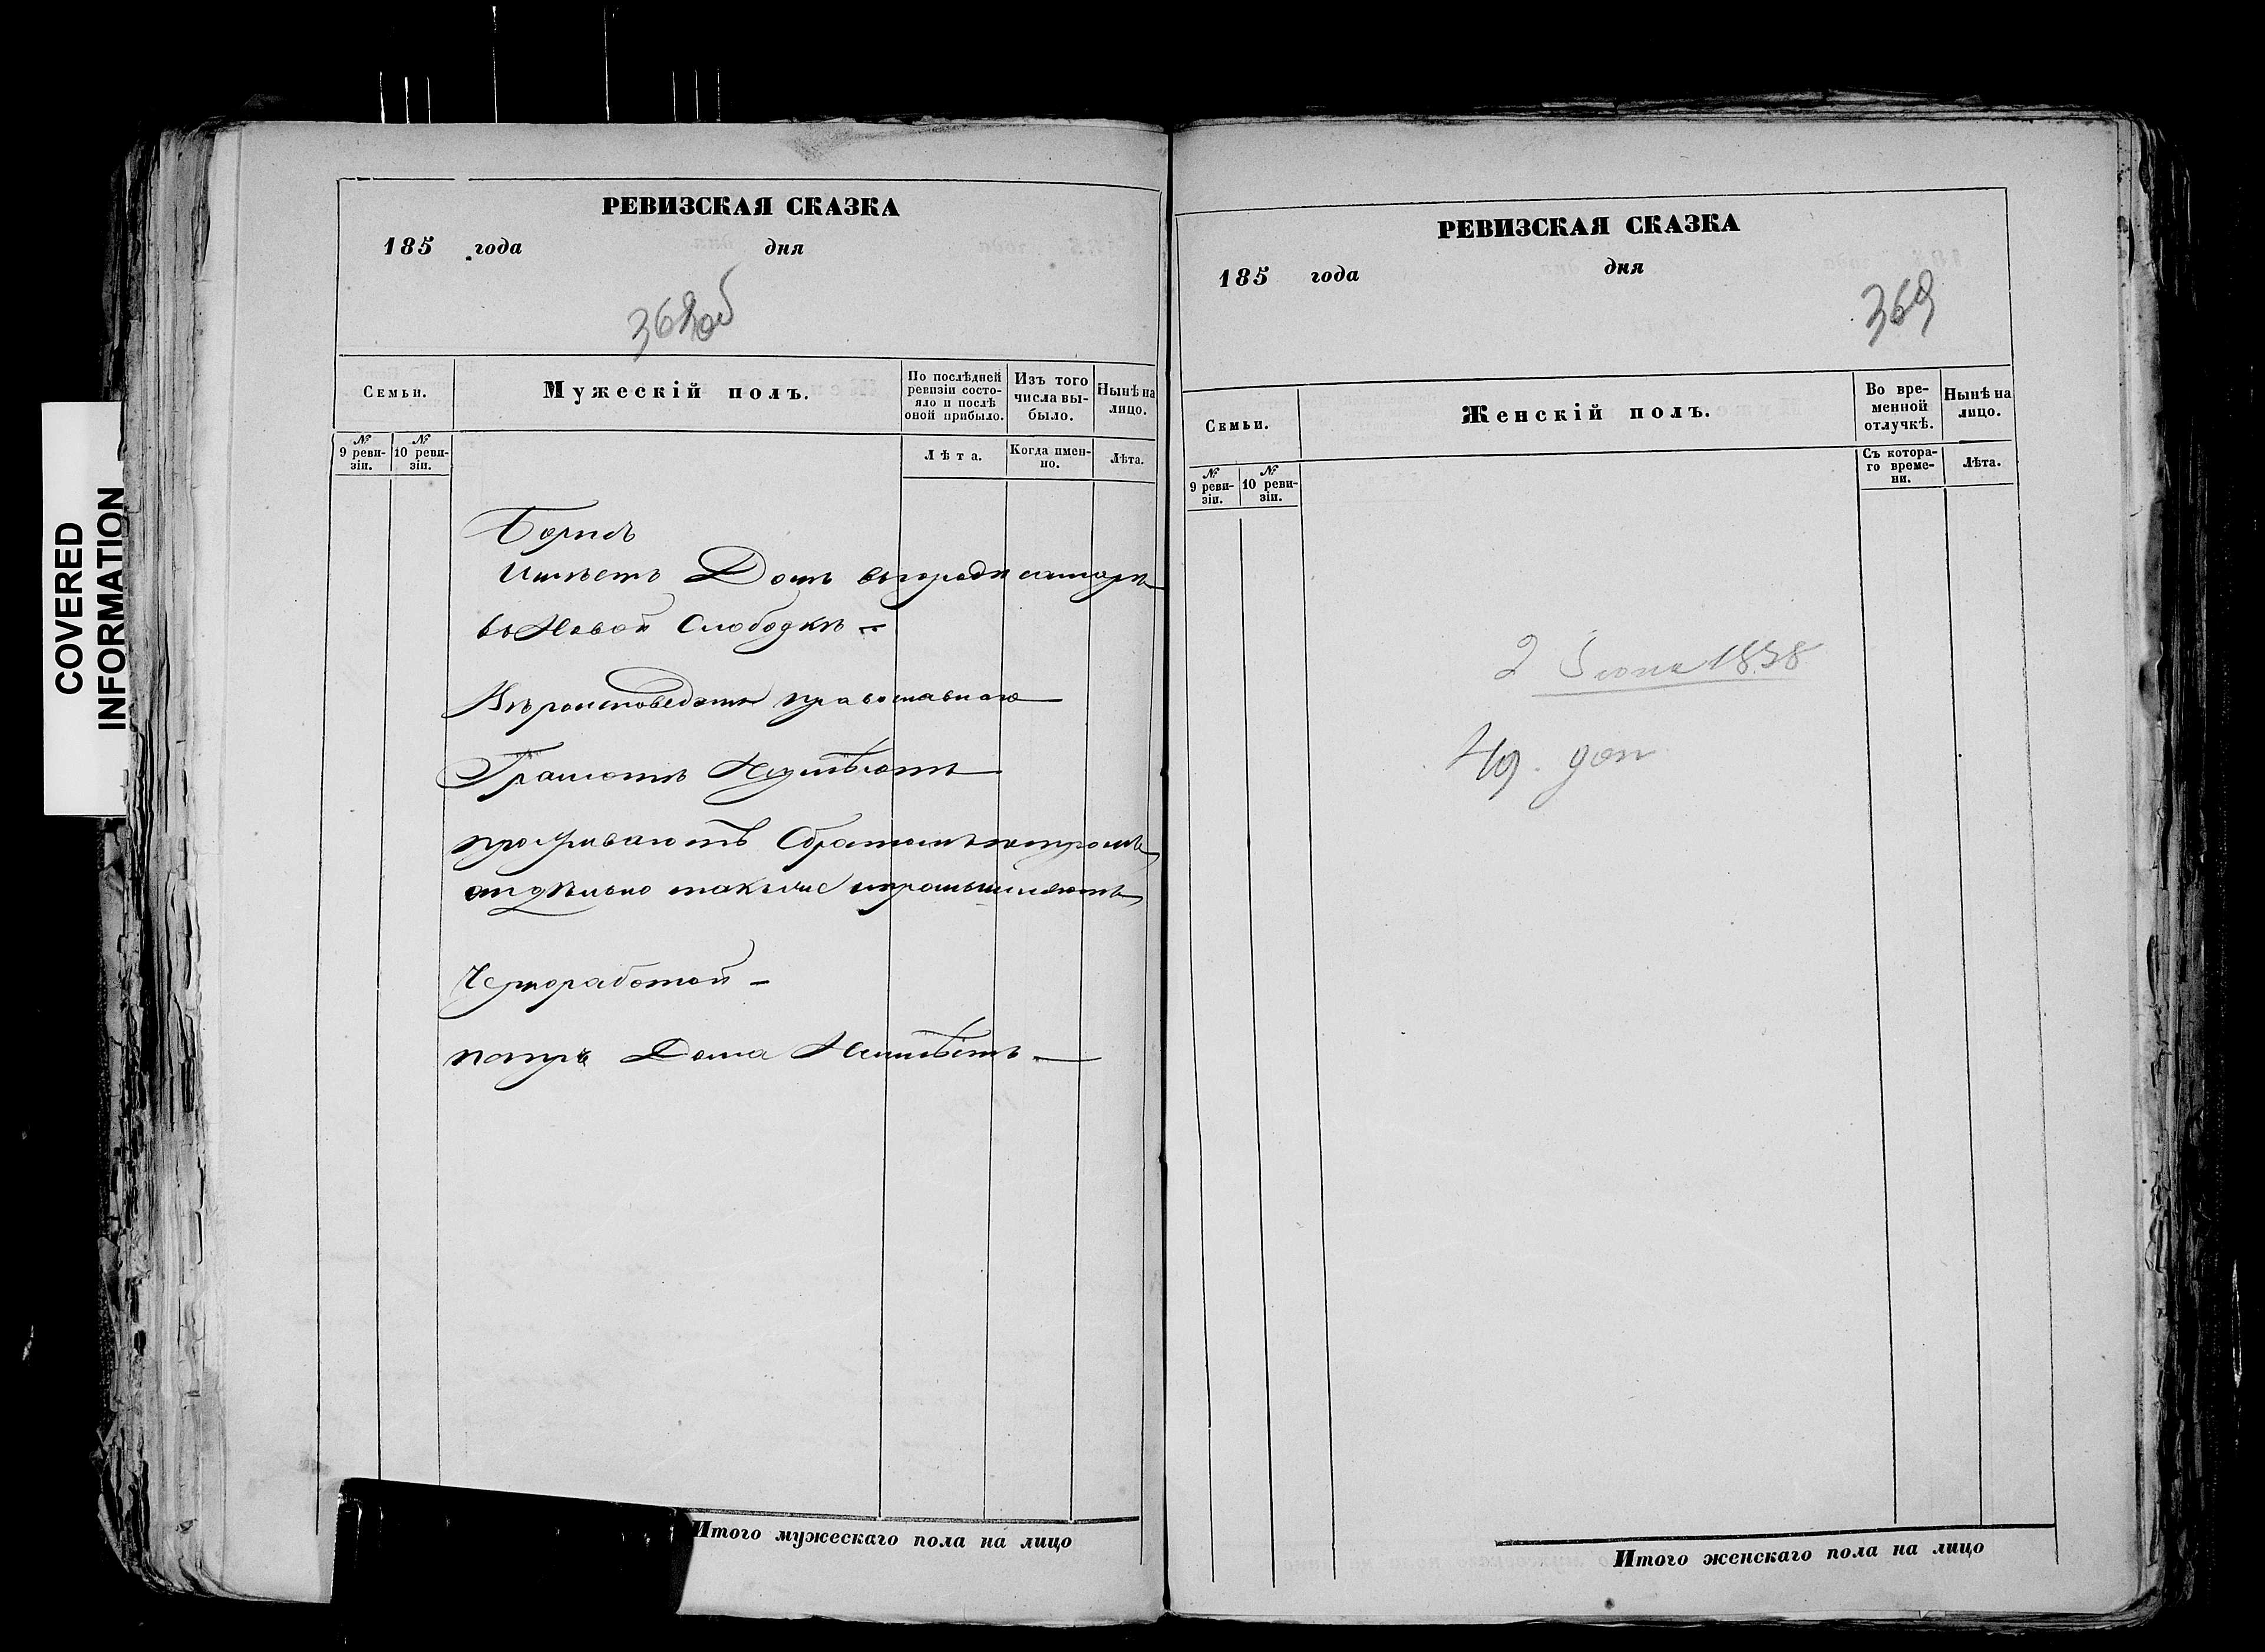 COVERED
INFORMATION
РЕВИЗСКАЯ СКАЗКА
185 года дня
368об
Семьи.
Мужескій полъ.
По послѣдней ревизіи состояло и послѣ оной прибыло.
Изъ того числа выбыло.
Нынѣ на лицо.
№ 9 ревизіи.
№ 10 ревизіи.
Лѣта.
Когда именно.
Лѣта.
Борисъ
Имѣетъ Домъ въ городѣ самарѣ
въ Новой Слободкѣ
Вѣроисповеданія православнаго
Грамотѣ Неумѣютъ
проживаютъ Сбратомъ петромъ
отдѣльно также ипромышляютъ
Чернработой
петръ Дома Неимѣетъ
Итого мужескаго пола на лицо
РЕВИЗСКАЯ СКАЗКА
185 года дня
369
Семьи.
Женскій полъ.
Во временной отлучкѣ.
Нынѣ на лицо.
№ 9 ревизіи.
№ 10 ревизіи.
Съ котораго времени.
Лѣта.
2 Іюня 1858
49. доп
Итого женскаго пола на лицо